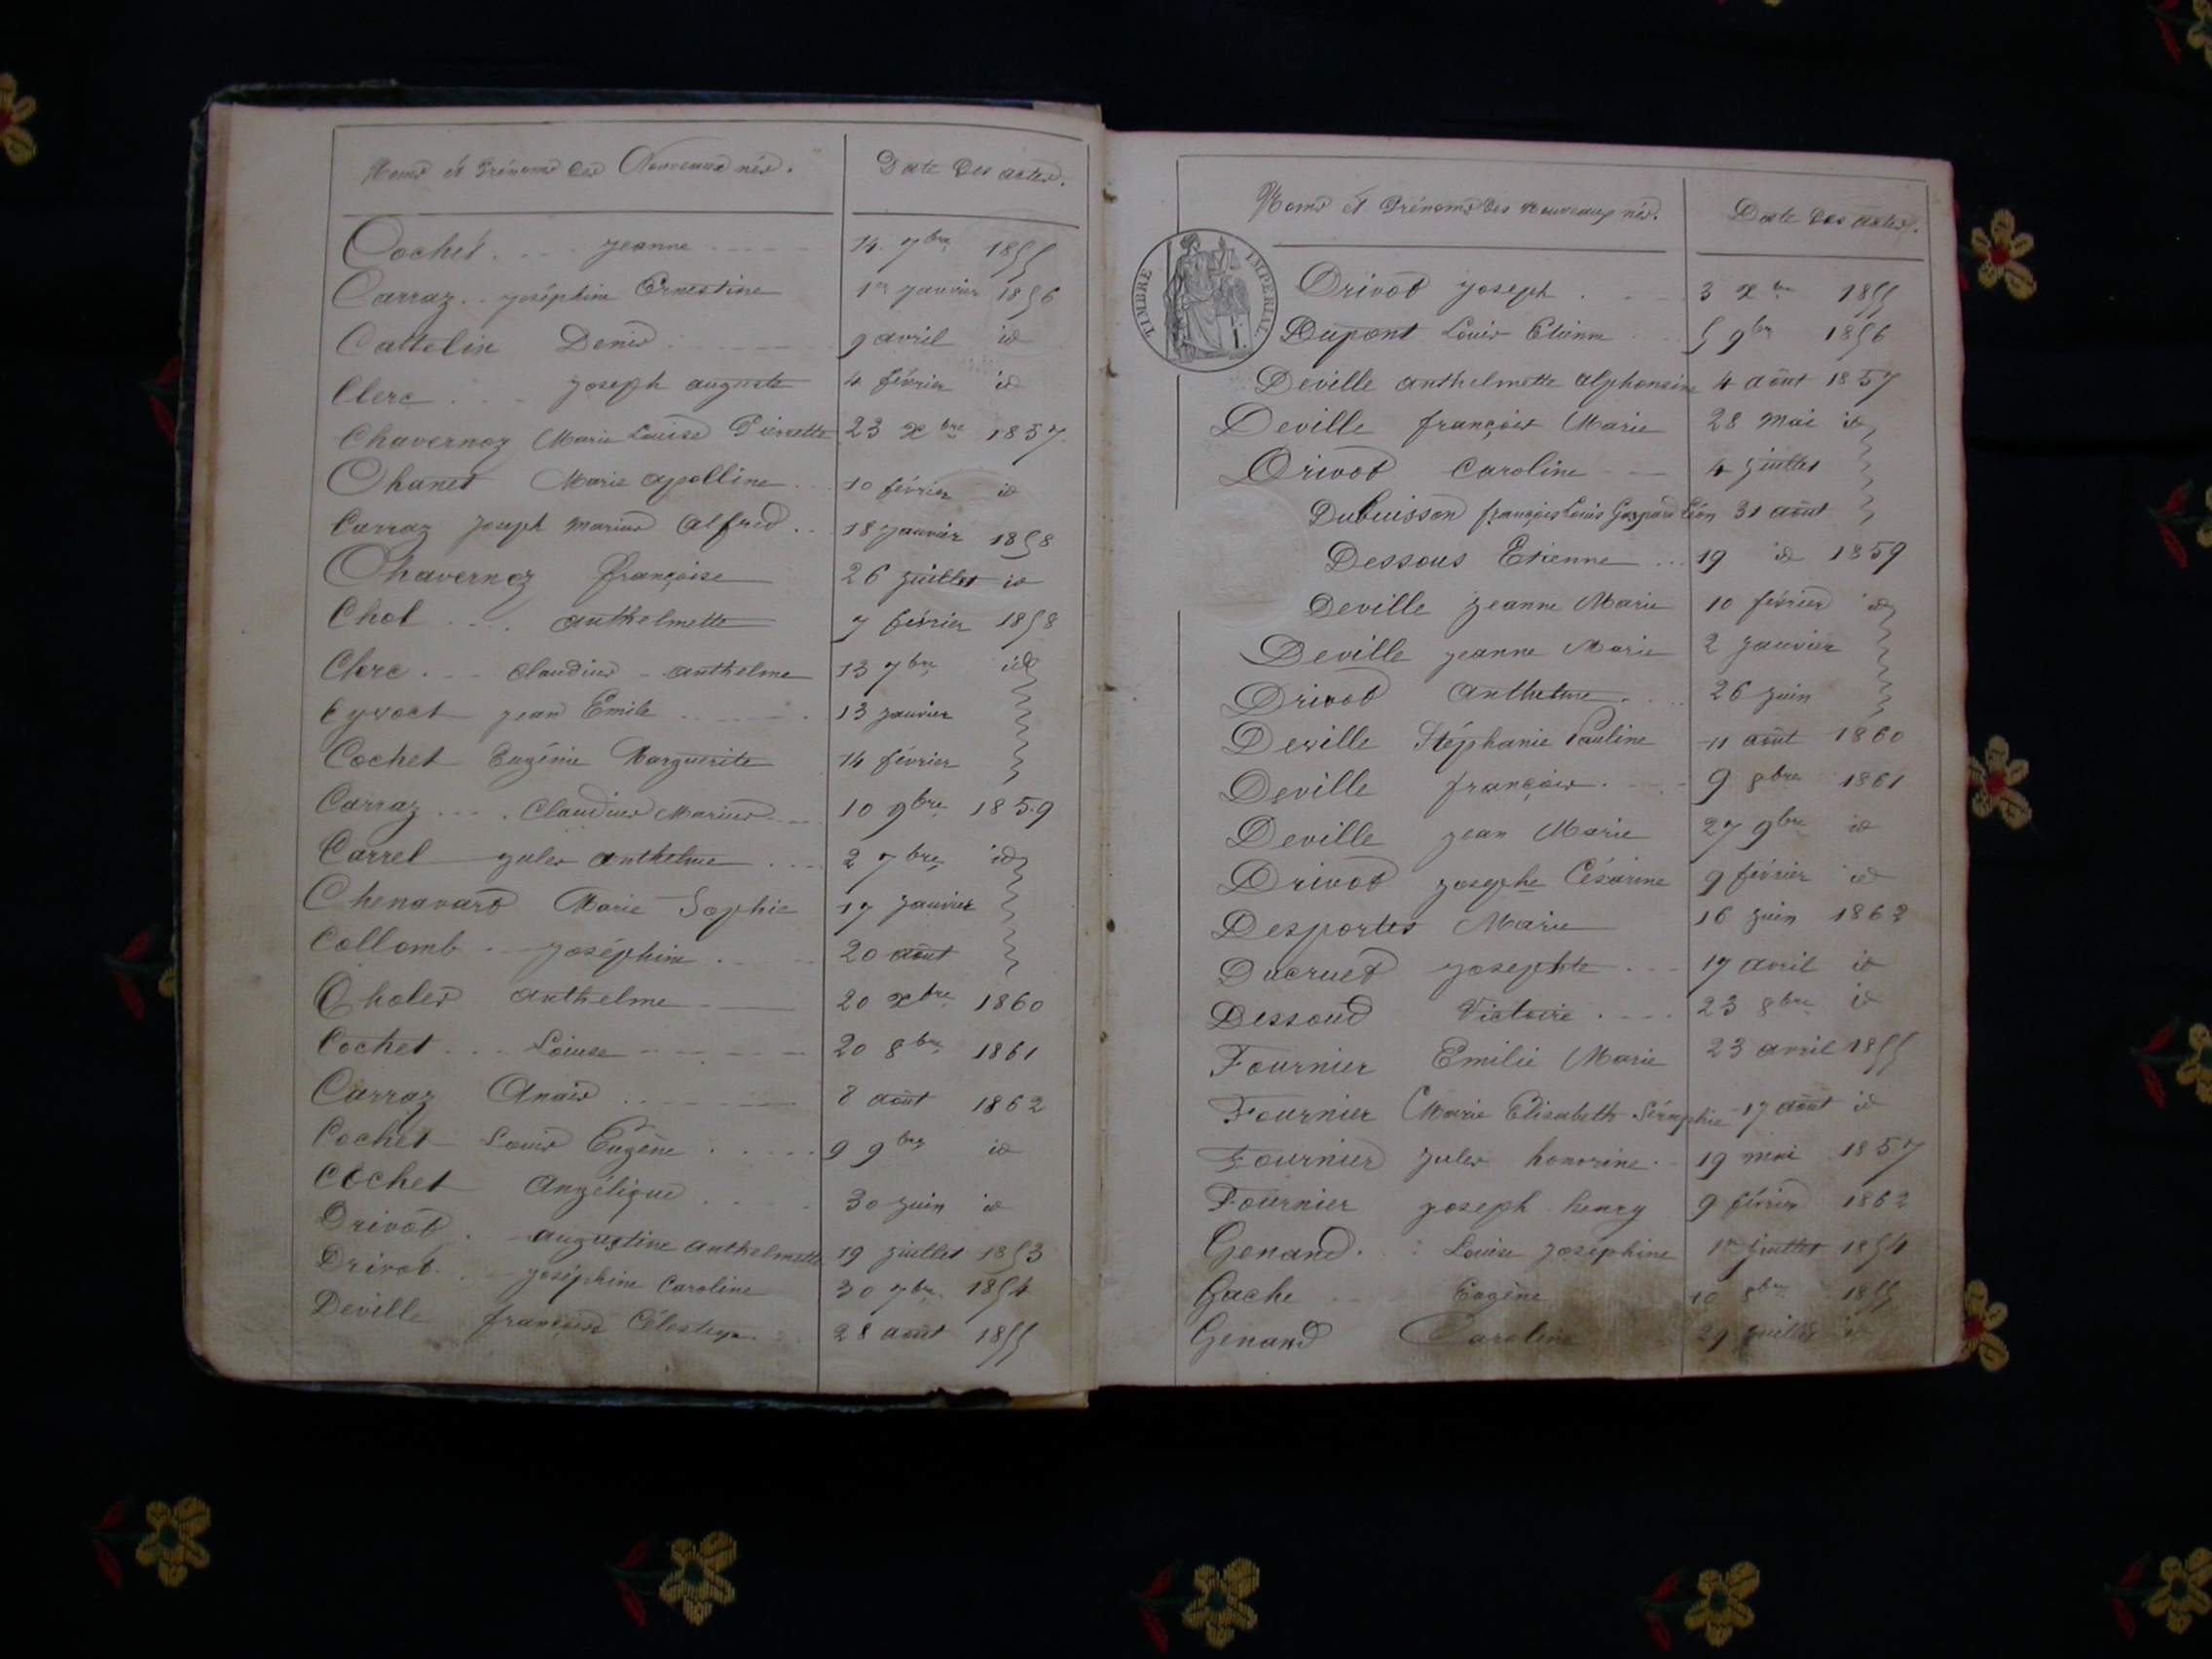 Noms et Prénoms des Nouveaux nés. Date des actes.
Cochet .... Jeanne ..... 14 7bre 1855
Carraz .. Joséphine Ernestine 1er Janvier 1856
Cattelin Denis ..... 9 avril id
Clerc .... Joseph auguste 4 février id
Chavernoz Marie Louise Pierrette 23 Xbre 1857
Chanet Marie apolline ... 10 février id
Carraz Joseph Marius Alfred .. 18 Janvier 1858
Chavernoz françoise 26 Juillet id
Chol .... anthelmette 7 février 1858
Clerc .... Claudius - anthelme 13 7bre id
Eyvoct Jean Emile ..... 13 Janvier
Cochet Eugénie Marguerite 14 février
Carraz .... Claudius Marius ... 10 9bre 1859
Carrel Jules anthelme ... 2 7bre id
Chenavard Marie Sophie 17 Janvier
Collomb ... Joséphine ..... 20 août
Cholet anthelme 20 Xbre 1860
Cochet ... Louise ..... 20 8bre 1861
Carraz Anais ..... 8 août 1862
Cochet Louis Eugène ..... 9 9bre id
Cochet Angélique ..... 30 Juin id
Drivot . augustine anthelmette 19 Juillet 1853
Drivot ... Joséphine Caroline 30 7bre 1854
Deville françois Célestin 28 août 1855
Noms et Prénoms des nouveaux nés. Date des actes.
TIMBRE IMPERIAL
Drivot Joseph .... 3 Xbre 1855
Dupont Louis Etienne ... 5 9bre 1856
Deville anthelmette alphonsine 4 août 1857
Deville françois Marie 28 mai id
Drivot Caroline --- 4 Juillet
Dubuisson françois Louis Gaspard Léon 31 août
Dessous Etienne ... 19 id 1859
Deville Jeanne Marie 10 février id
Deville Jeanne Marie 2 Janvier
Drivot Anthelme .... 26 Juin
Deville Stéphanie Pauline 11 août 1860
Deville françois .... 9 8bre 1861
Deville Jean Marie 27 9bre id
Drivot Josephe Césarine 9 février id
Desportes Marie 16 Juin 1862
Ducruet Josephte .... 17 avril id
Dessoud Victoire .... 23 8bre id
Fournier Emilie Marie 23 avril 1855
Fournier Marie Elisabeth Séraphie 17 août id
Fournier Jules honorine .. 19 mai 1857
Fournier Joseph henry 9 février 1862
Genand . : Louise Joséphine 1er Juillet 1854
Gache Eugène 10 8bre 1855
Genand Caroline 29 Juillet id